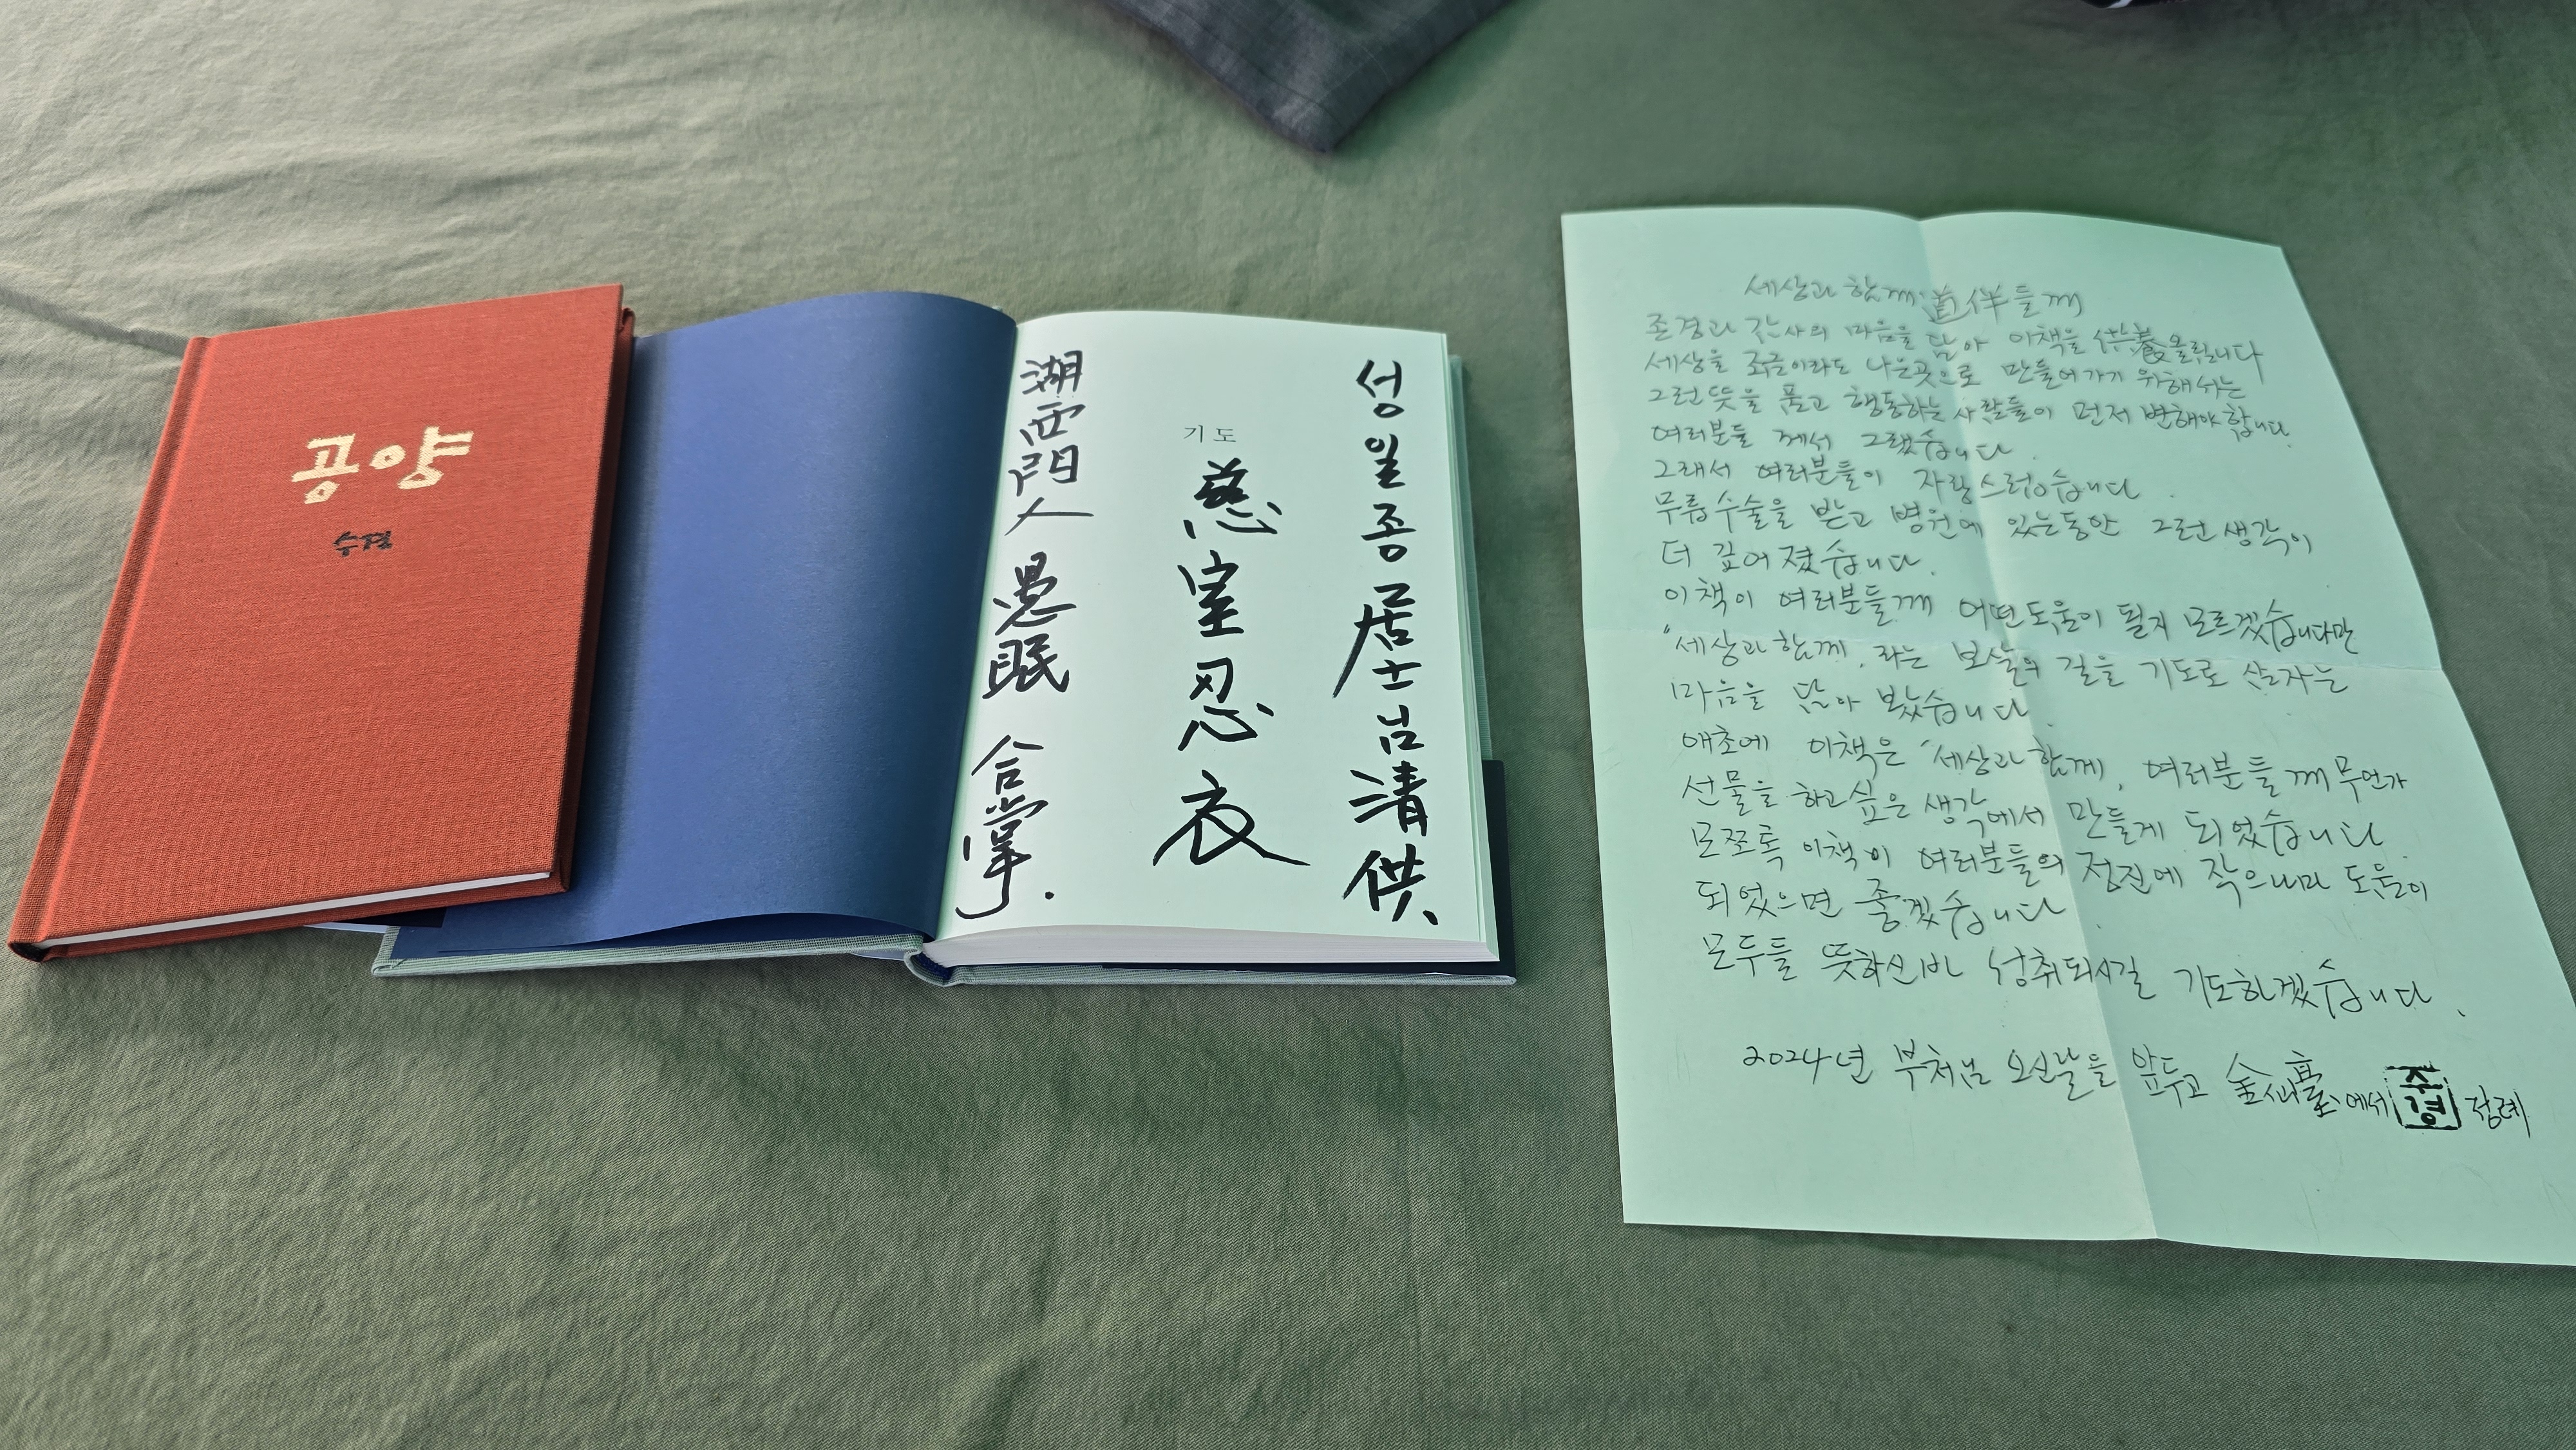 공양
수경
성일종居士님清供.
기도
慈室忍衣
湖西門人 愚眠 合掌.
세상과 함께 道伴들께
존경과 감사의 마음을 담아 이책을 供養올립니다
세상을 조금이라도 나은곳으로 만들어가기 위해서는
그런 뜻을 품고 행동하는 사람들이 먼저 변해야 합니다.
여러분들 께서 그랬습니다.
그래서 여러분들이 자랑스러웠습니다.
무릎수술을 받고 병원에 있는동안 그런 생각이
더 깊어 졌습니다.
이책이 여러분들께 어떤도움이 될지 모르겠습니다만
"세상과 함께, 라는 보살의 길을 기도로 삼자는
마음을 담아 보았습니다.
애초에 이책은 "세상과 함께, 여러분들께 무언가
선물을 하고싶은 생각에서 만들게 되었습니다
모쪼록 이책이 여러분들의 정진에 작으나마 도움이
되었으면 좋겠습니다
모두들 뜻하신바 성취되시길 기도하겠습니다.
2024년 부처님 오신날을 앞두고 金仙臺에서 수경 정례